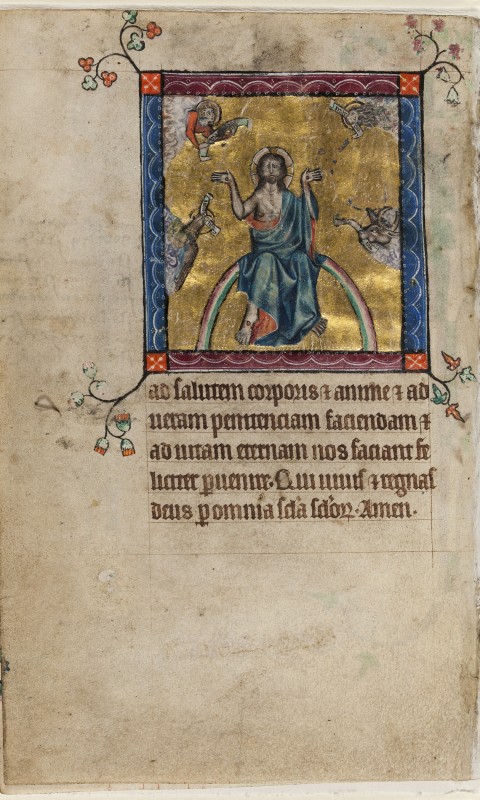 ad salutem corporis ⁊ anime ⁊ ad
ueram penitenciam faciendam ⁊
ad uitam eternam nos faciant fe
liciter ꝑuenire. Qui uiuis ⁊ regnas
deus ꝑ omnia scl̄a scl̄oꝝ. Amen.